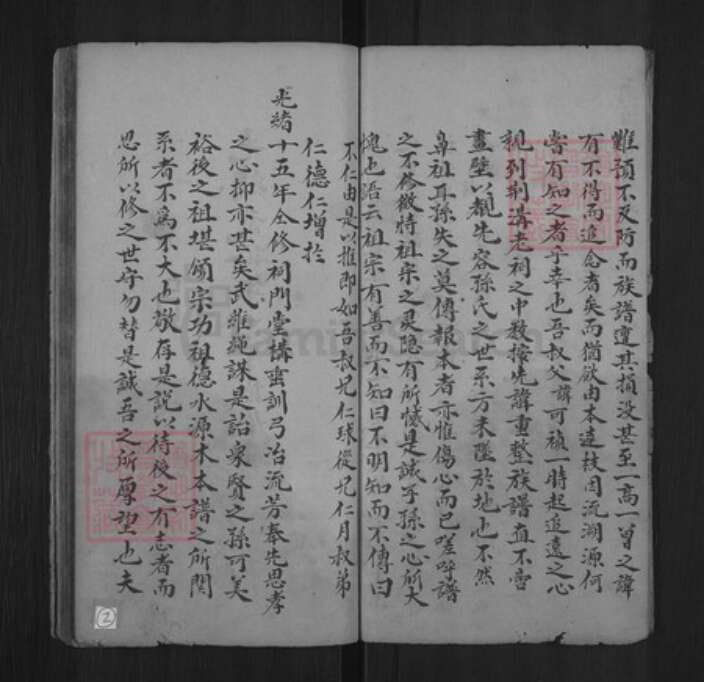 難預不及防而族譜遭其損没甚至一高一曽之諱
有不得而追念者矣而猶欲由本達枝因流溯源何
嘗有知之者乎幸也吾叔父諱可禎一時起追遠之心
親列荆溝老祠之中教按先諱重整族譜直不啻
畫壁以觀先容孫氏之世系方未墜於地也不然
鼻祖耳孫失之莫傳報本者亦惟傷心而已嗟呼譜
之不修微特祖宗之灵隐有所憾是誠子孫之心所大
愧也語云祖宗有善而不知曰不明知而不傳曰
不仁由是以推即如吾叔兄仁球從兄仁月叔弟
仁德仁增於
光緒十五年仝修祠門堂構啻訓弓冶流芳奉先思孝
之心抑亦甚矣武維繩誅是詒衆賢之孫可美
裕後之祖堪頌宗功祖德水源木本譜之所関
系者不為不大也敬存是説以待後之有志者而
思所以修之世守勿替是誠吾之所厚望也夫
2